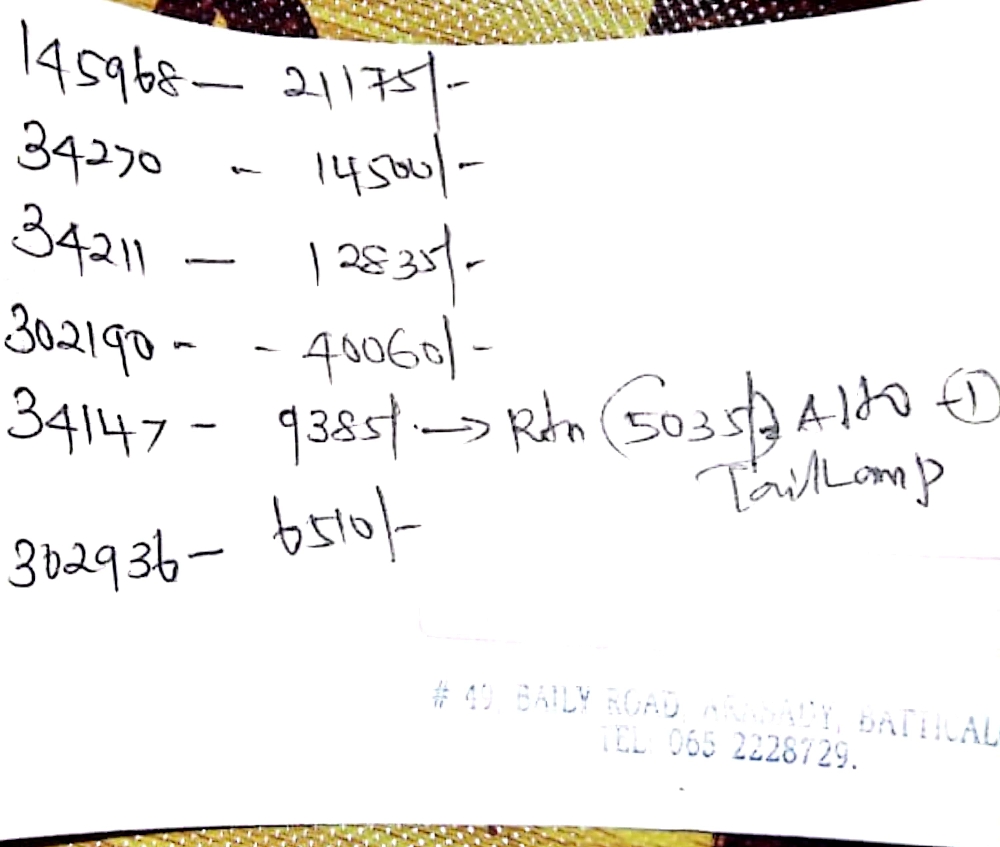 145968 — 21175/-
34270 - 14500/-
34211 — 12835/-
302190 - - 40060/-
34147 - 9385/- → Rtn (5035/-) Alto -①
TailLamp
302936 - 6510/-
# 49, BAILY ROAD, ARASADY, BATTICAL
TEL: 065 2228729.